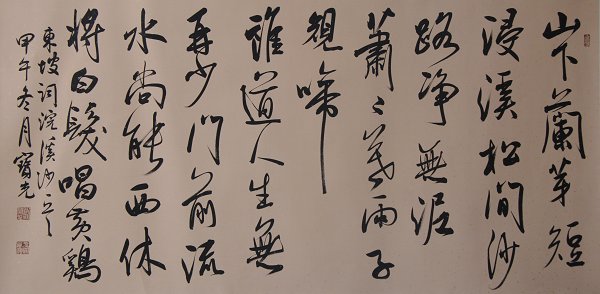 山下蘭芽短
浸溪松間沙
路净無泥
蕭〻暮雨子
規啼
誰道人生無
再少門前流
水尚能西休
將白髮唱黄鷄
東坡词浣溪沙
甲午冬月寶光